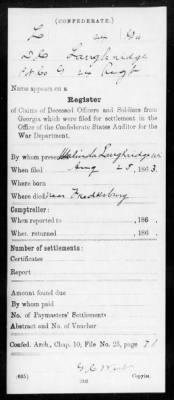 (CONFEDERATE.)
L 24 Ga
D.C. Loughridge
Pvt Co G 24 Regt
Name appears on a
Register
of Claims of Deceased Officers and Soldiers from
Georgia which were filed for settlement in the
Office of the Confederate States Auditor for the
War Department.
By whom presented Malinda Loughridge
When filed Aug 25, 1863.
Where born
Where died near Fredksburg
Comptroller:
When reported to , 186 .
When returned , 186 .
Number of settlements:
Certificates
Report
Amount found due
By whom paid
No. of Paymasters' Settlements
Abstract and No. of Voucher
Confed. Arch., Chap. 10, File No. 25, page
(635)
Copyist.